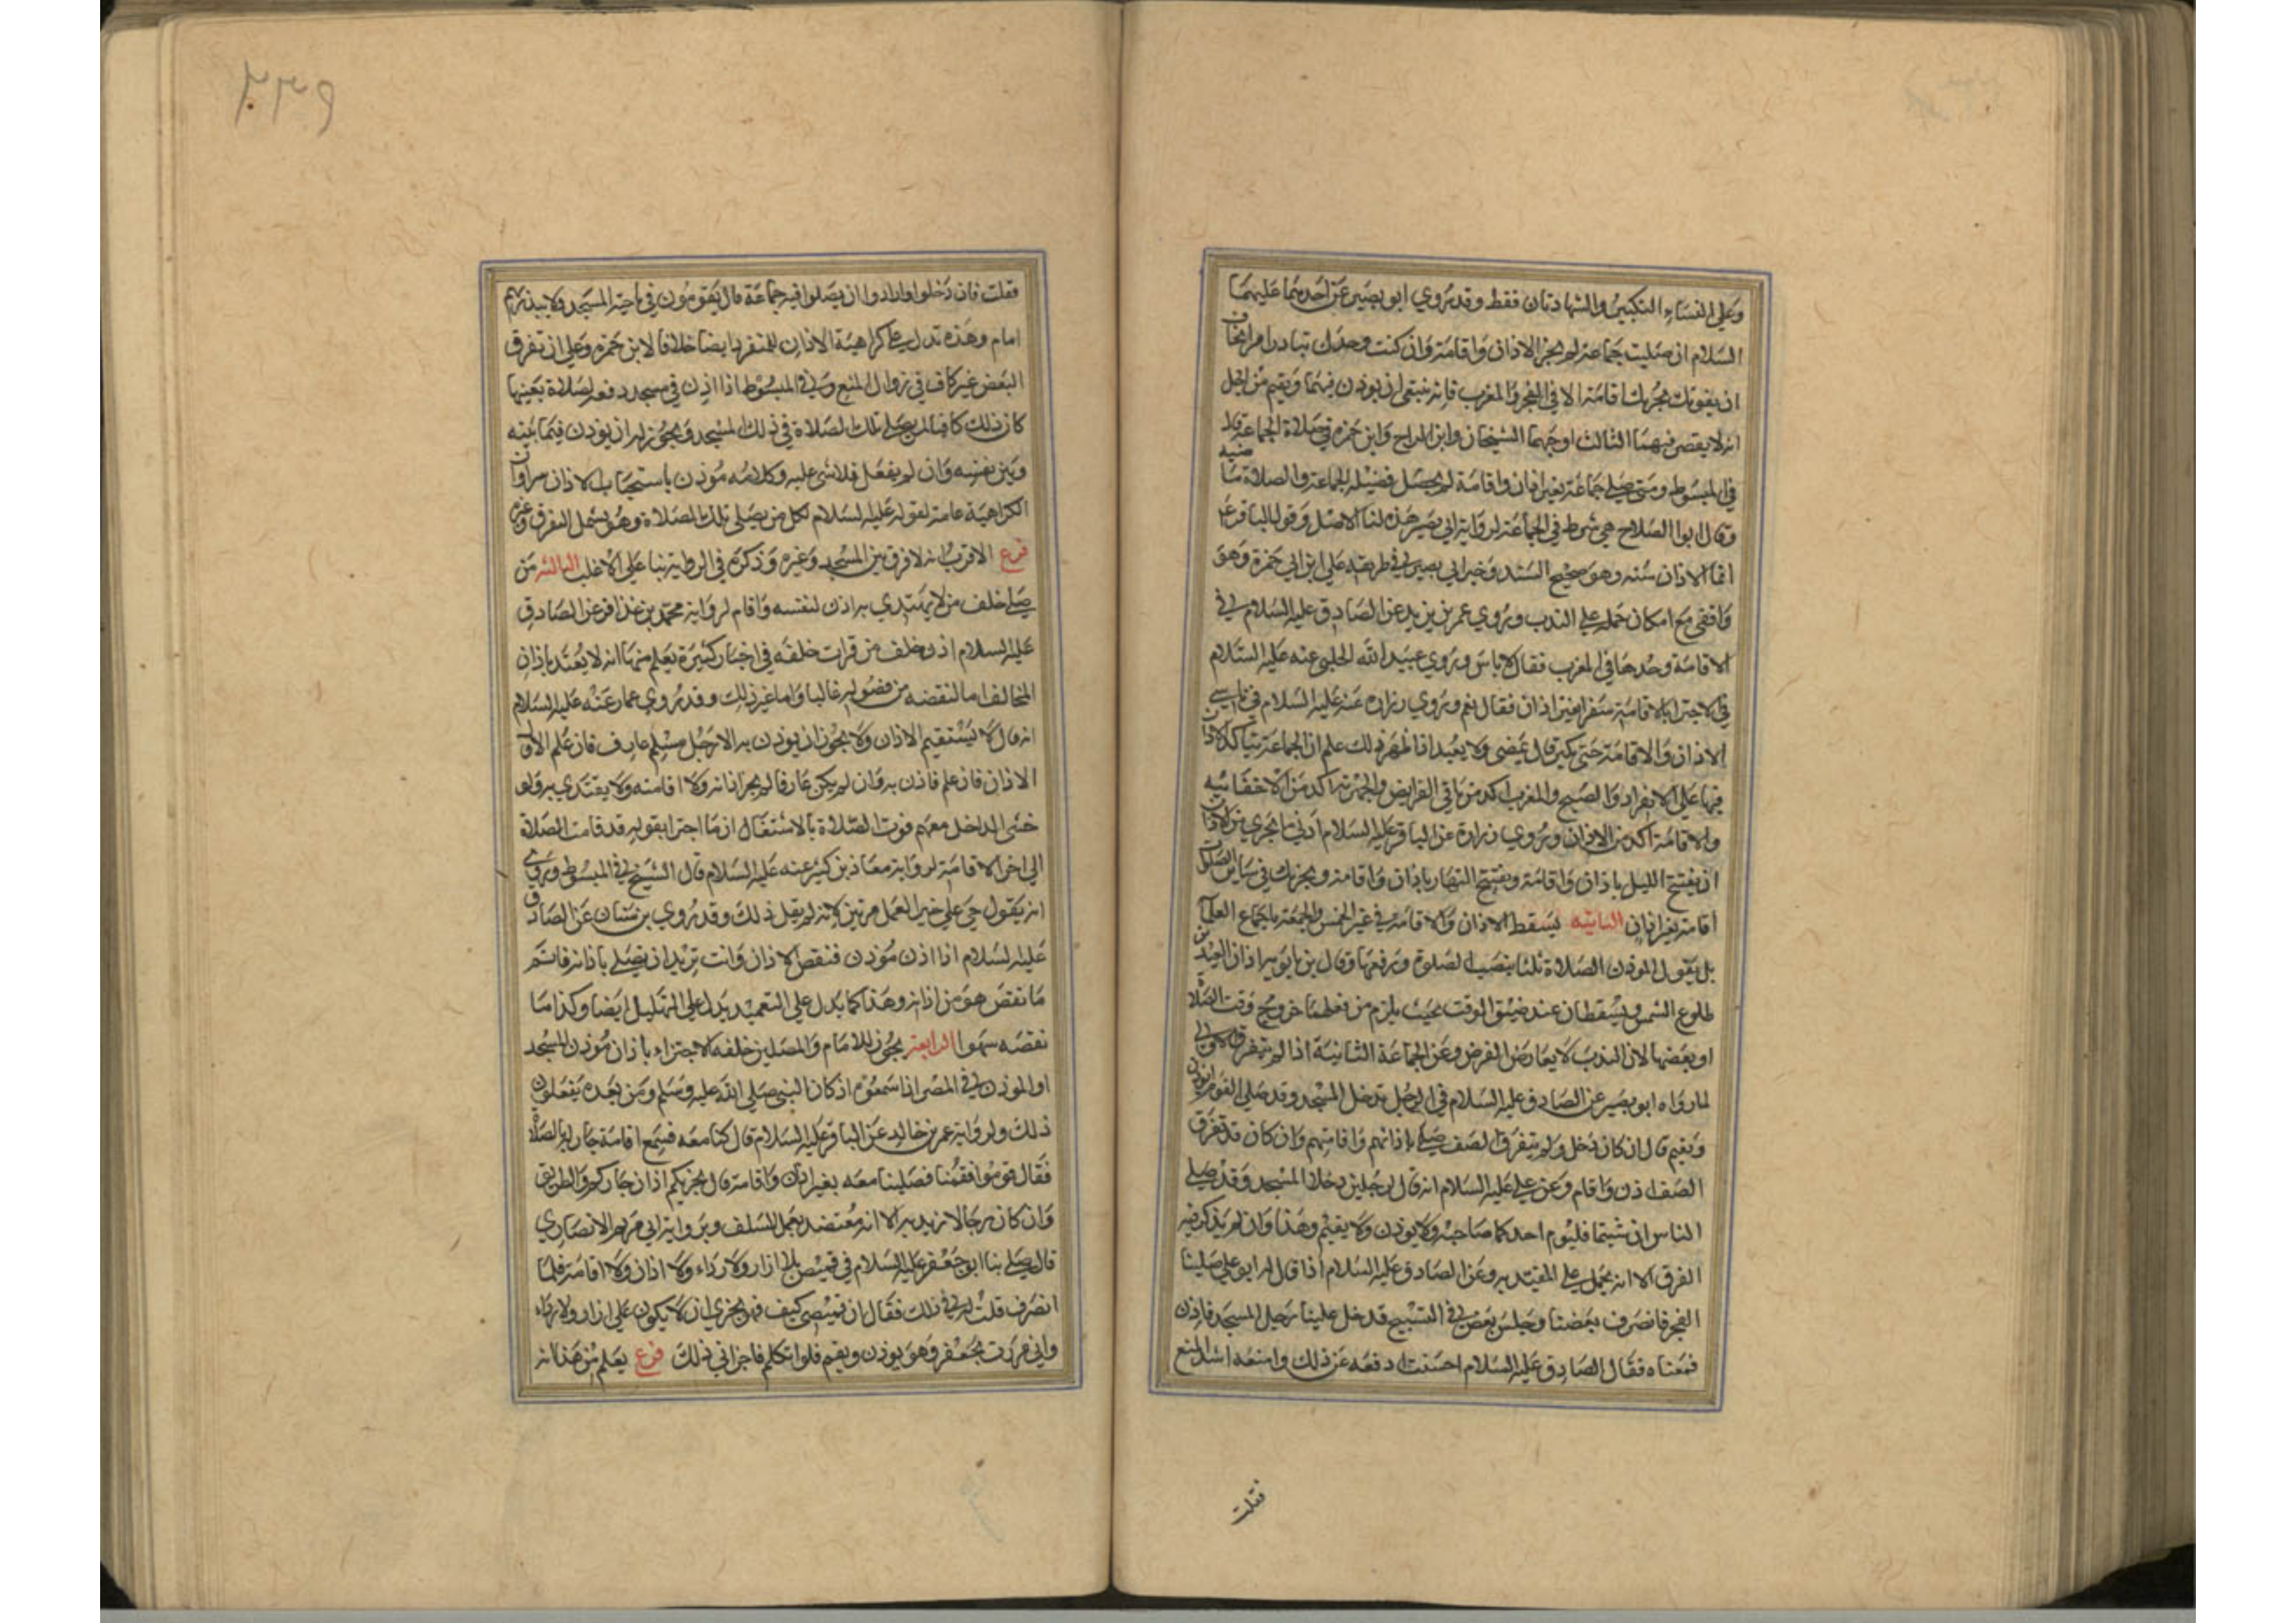 وعلى النساء التكبير والشهادتان فقط وقد روي ابو بصير عن احدهما عليهما
السلام ان صليت جماعة لم يجز الا اذان واقامة وان كنت وحدك تبادر امرا تخاف
ان يفوتك يجزيك اقامة الا في الفجر والمغرب فانه ينبغي ان يوذن فيهما ويقيم من اجل
انه لا يقصر فيهما الثالث اوجبهما الشيخان وابن البراج وابن حمزة في صلاة الجماعة
في المبسوط ومتى صلى جماعة بغير اذان واقامة لم يحصل فضيلة الجماعة والصلاة ماضيه
وقال ابوا الصلاح هي شرط في الجماعة لرواية ابي بصير هذه لنا الاصل وقول الباقر ع
انما الاذان سنة وهو صحيح السند وخبر ابي بصير في طريقه علي ابن ابي حمزة وهو
واقفي مع امكان حمله على الندب وروي عمر بن يزيد عن الصادق عليه السلام في
الاقامة وحدها في المغرب فقال لا باس وروي عبيد الله الحلبي عنه عليه السلام
في الاجتزا بالاقامة سفرا بغير اذان فقال نعم وروي زرارة عنه عليه السلام في ناسي
الاذان والاقامة حتى يكبر قال يمضي ولا يعيد اذا ظهر ذلك علم ان الجماعة يتاكد الاذان
فيها على الانفراد والصبح والمغرب اكد من باقي الفرايض والجهرية اكد من الاخفاتيه
والاقامة اكد من الاذان وروي زرارة عن الباقر عليه السلام ادنى ما يجزي من الاذان
ان يفتتح الليل باذان واقامة ويفتتح النهار باذان واقامة ويجزيك في ساير الصلوات
اقامة بغير اذان الثانيه يسقط الاذان والاقامة في غير الخمس والجمعة باجماع العلما
بل يقول الموذن الصلاة ثلثا بنصب الصلوة ورفعها وقال بن بابويه اذان العيدين
طلوع الشمس ويسقطان عند ضيق الوقت بحيث يلزم من فعلهما خروج وقت الصلاة
او بعضها لان الندب لا يعارض الفرض وعن الجماعة الثانية اذا لم يتفرق الاولى
لما رواه ابو بصير عن الصادق عليه السلام في الرجل يدخل المسجد وقد صلى القوم ايوذن
ويقيم قال ان كان دخل ولم يتفرق الصف صلى باذانهم واقامتهم وان كان قد تفرق
الصف اذن واقام وعن علي عليه السلام انه قال لرجلين دخلا المسجد وقد صلى
الناس ان شيتما فليوم احدكما صاحبه ولا يوذن ولا يقيم وهذا وان لم يذكر فيه
الفرق الا انه يحمل على المقيد به وعن الصادق عليه السلام اذا قال له ابو علي صلينا
الفجر فانصرف بعضنا وجلس بعض في التسبيح فدخل علينا رجل المسجد فاذن
فمنعناه فقال الصادق عليه السلام احسنت ادفعه عن ذلك وامنعه اشد المنع
فقلت
٢٣٩
فقلت فان دخلوا وارادوا ان يصلوا فيه جماعة قال يقومون في ناحية المسجد ولا يبدر بهم
امام وهذه تدل على كراهية الاذان للمنفرد ايضا خلافا لابن حمزة وعلى ان تفرق
البعض غير كاف في زوال المنع وفي المبسوط اذا اذن في مسجد دفعه لصلاة بعينها
كان ذلك كافيا لمن يصلي تلك الصلاة في ذلك المسجد ويجوز له ان يوذن فيما بينه
وبين نفسه وان لم يفعل فلا شي عليه وكلامه موذن باستحباب الاذان سرا وان
الكراهية عامة لقوله عليه السلام لكل من يصلي تلك الصلاة وهو يشمل التفرق وغيره
فرع الاقرب انه لا فرق بين المسجد وغيره وذكره في الرواية بنا على الاغلب الثالثه من
صلى خلف من لا يقتدي به اذن لنفسه واقام لرواية محمد بن عذافر عن الصادق
عليه السلام اذن خلف من قرات خلفه في اخبار كثيرة يعلم منها انه لا يعتد باذان
المخالف اما لنقصه من فصوله غالبا واما غير ذلك وقد روي عمار عنه عليه السلام
انه قال لا يستقيم الاذان ولا يجوز ان يوذن به الا رجل مسلم عارف فان علم الاول
الاذان فان علم فاذن به وان لم يكن عارفا لم يجز اذانه ولا اقامته ولا يقتدي به ولو
خشى الداخل معهم فوت الصلاة بالاشتغال اذ ما اجتزا بقوله قد قامت الصلاة
الى اخر الاقامة لرواية معاذ بن كثير عنه عليه السلام قال الشيخ في المبسوط وروي
انه يقول حي على خير العمل مرتين لانه لم يقل ذلك وقد روي بن سنان عن الصادق
عليه السلام اذا اذن موذن فنقص الاذان وانت تريد ان تصلي باذانه فاتم
ما نقص هو من اذانه وهذا كما يدل على التعميد يدل على التهليل ايضا وكذا ما
نقصه سهوا الرابعة يجوز للامام والمصلين خلفه الاجتزاء باذان موذن المسجد
او الموذن في المصر اذا سمعوه اذ كان النبي صلى الله عليه وسلم ومن بعده يفعلون
ذلك ولرواية عمر بن خالد عن الباقر عليه السلام قال كنا معه فسمع اقامة جار له بالصلاة
فقال قوموا فقمنا فصلينا معه بغير اذان واقامة قال يجزيكم اذان جاركم والطريق
وان كان رجالا زيديه الا انه معتضد بعمل السلف وبرواية ابي مريم الانصاري
قال صلى بنا ابو جعفر عليه السلام في قميص بلا ازار ولا رداء ولا اذان ولا اقامة فلما
انصرف قلت له في ذلك فقال ان قميصي كثيف فهو يجزي ان لا يكون علي ازار ولا رداء
واني مررت بجعفر وهو يوذن ويقيم فلم اتكلم فاجزاني ذلك فرع يعلم من هذا انه